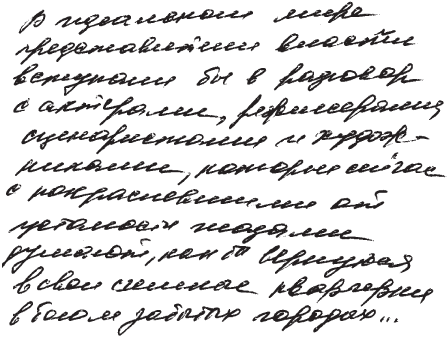 В идеальном мире
представители власти
вступали бы в разговор
с актерами, режиссерами,
сценаристами и худож-
никами, которые сейчас
с покрасневшими от
усталости глазами
думают, как б вернуться
в свои съемные квартирки
в богом забытых городах...